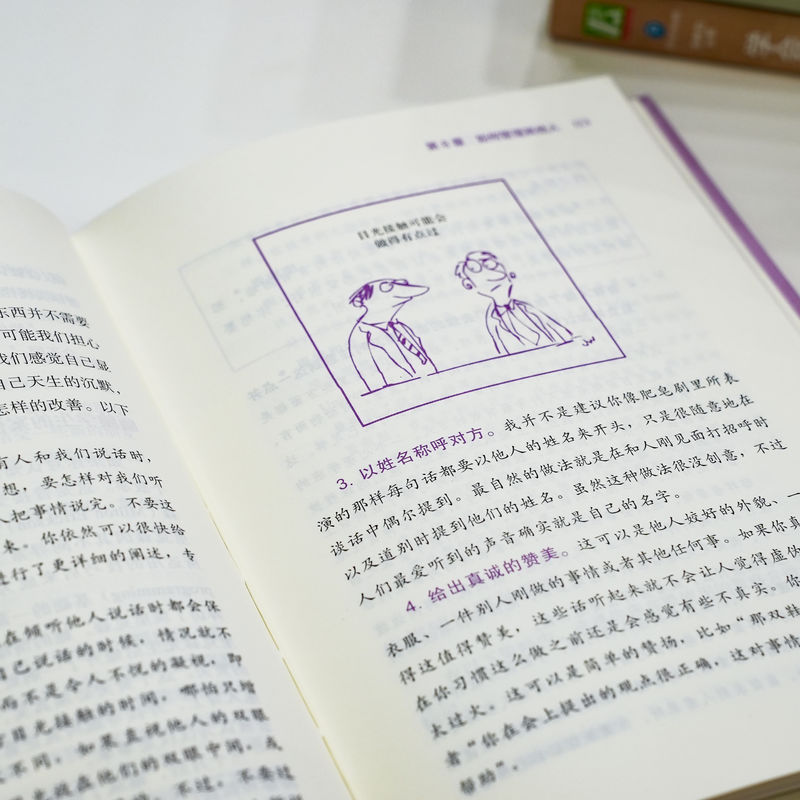 东西并不需要
可能我们担心
我们感觉自己显
自己天生的沉默，
怎样的改善。以下
有人和我们说话时，
想，要怎样对我们听
人把事情说完。不要这
来。你依然可以很快给
进行了更详细的阐述，专
在倾听他人说话时都会保
自己说话的时候，情况就不
而不是令人不悦的凝视，即
目光接触的时间，哪怕只增
不同，如果直视他人的双眼
光放在他们的双眼中间，或
不过，不要过
目光接触可能会
做得有点过
3. 以姓名称呼对方。我并不是建议你像肥皂剧里所表
演的那样每句话都要以他人的姓名来开头，只是很随意地在
谈话中偶尔提到。最自然的做法就是在和人刚见面打招呼时
以及道别时提到他们的姓名。虽然这种做法很没创意，不过
人们最爱听到的声音确实就是自己的名字。
4. 给出真诚的赞美。这可以是他人姣好的外貌、一
衣服、一件别人刚做的事情或者其他任何事。如果你真
得这值得赞美，这些话听起来就不会让人觉得虚伪
在你习惯这么做之前还是会感觉有些不真实。你
太过火。这可以是简单的赞扬，比如“那双鞋
者“你在会上提出的观点很正确，这对事情
帮助”。
学会